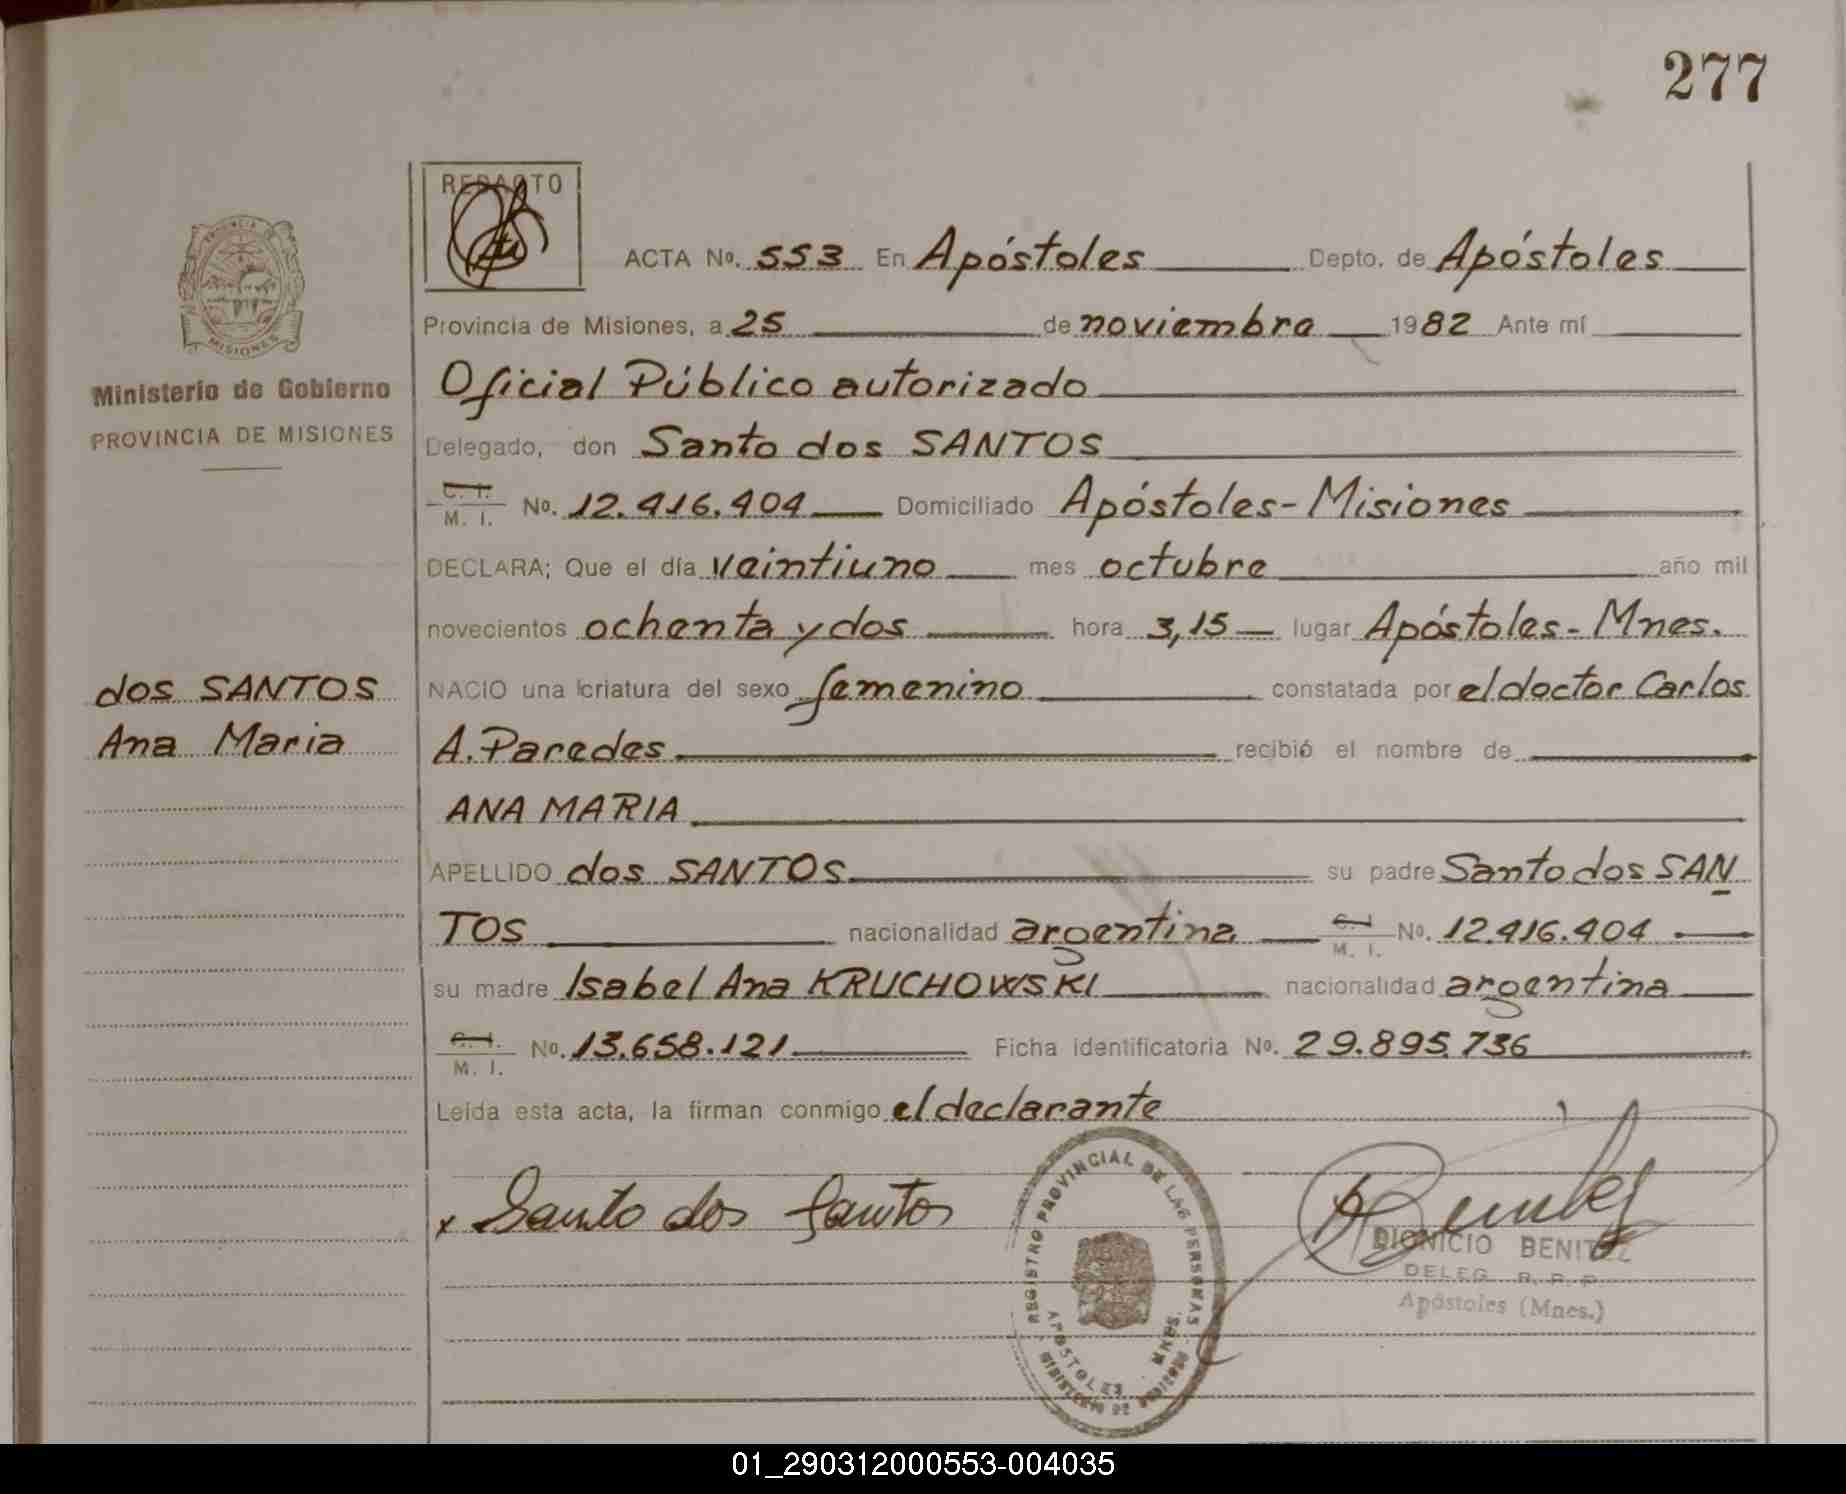 277
REDACTO
ACTA No. 553 En Apóstoles Depto. de Apóstoles
Provincia de Misiones, a 25 de noviembre 1982 Ante mí
Oficial Público autorizado
Delegado, don Santo dos SANTOS
C. I.
M. I. No. 12.416.404 Domiciliado Apóstoles-Misiones
DECLARA; Que el día veintiuno mes octubre año mil
novecientos ochenta y dos hora 3,15 lugar Apóstoles-Mnes.
NACIO una criatura del sexo femenino constatada por el doctor Carlos
A. Paredes recibió el nombre de
ANA MARIA
APELLIDO dos SANTOS su padre Santo dos SAN
TOS nacionalidad argentina C. I. M. I. No. 12.416.404
su madre Isabel Ana KRUCHOWSKI nacionalidad argentina
C. I.
M. I. No. 13.658.121 Ficha identificatoria No. 29.895.736
Leída esta acta, la firman conmigo el declarante
x Santo dos Santos
PROVINCIA DE
MISIONES
Ministerio de Gobierno
PROVINCIA DE MISIONES
dos SANTOS
Ana Maria
REGISTRO PROVINCIAL DE LAS PERSONAS
APOSTOLES MNES.
MINISTERIO DE GOBIERNO
DIONICIO BENITEZ
DELEG. R. P. P.
Apóstoles (Mnes.)
01_290312000553-004035